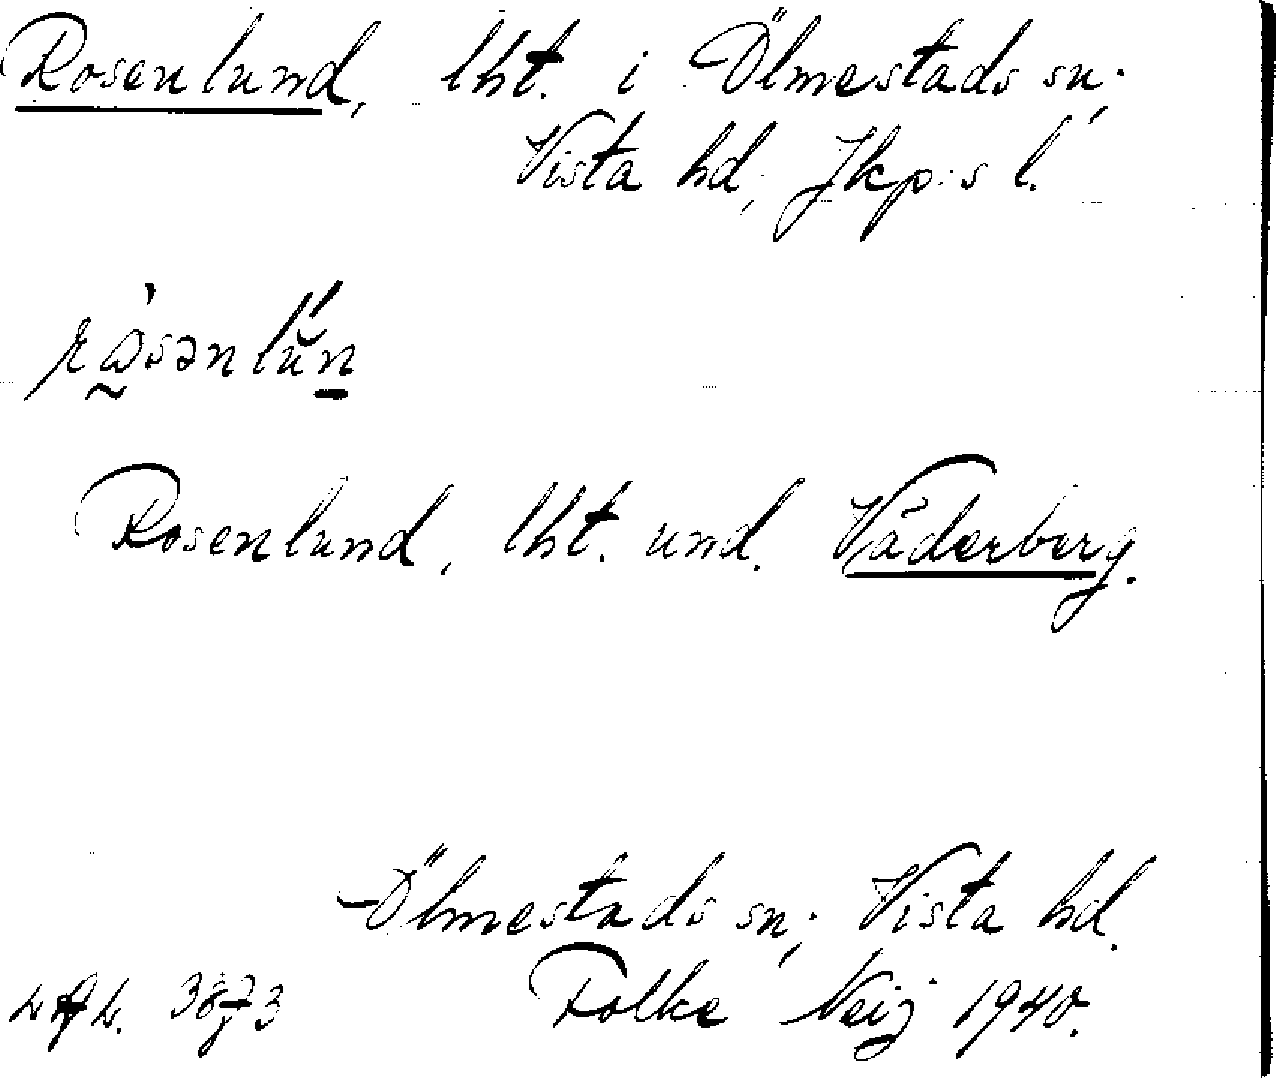 Rosenlund, lht. i Ölmestads sn;
Vista hd, Jkp:s l.
Rosenlund, lht. und. Väderberg.
Ölmestads sn; Vista hd.
Folke Neij 1940.